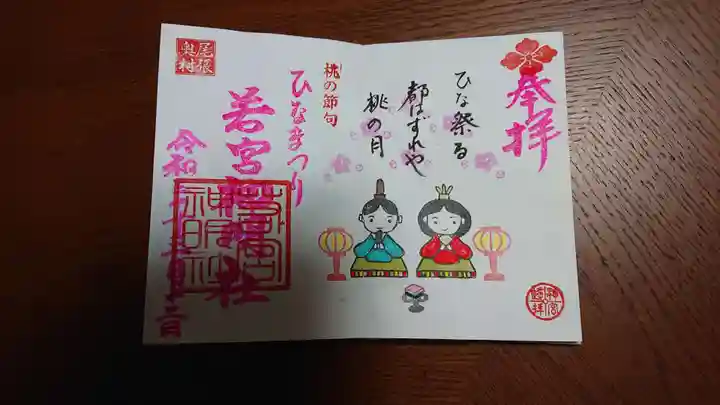 奉拝
ひな祭る
都はずれや
桃の月
桃の節句
ひなまつり
若宮神明社
尾張
奥村